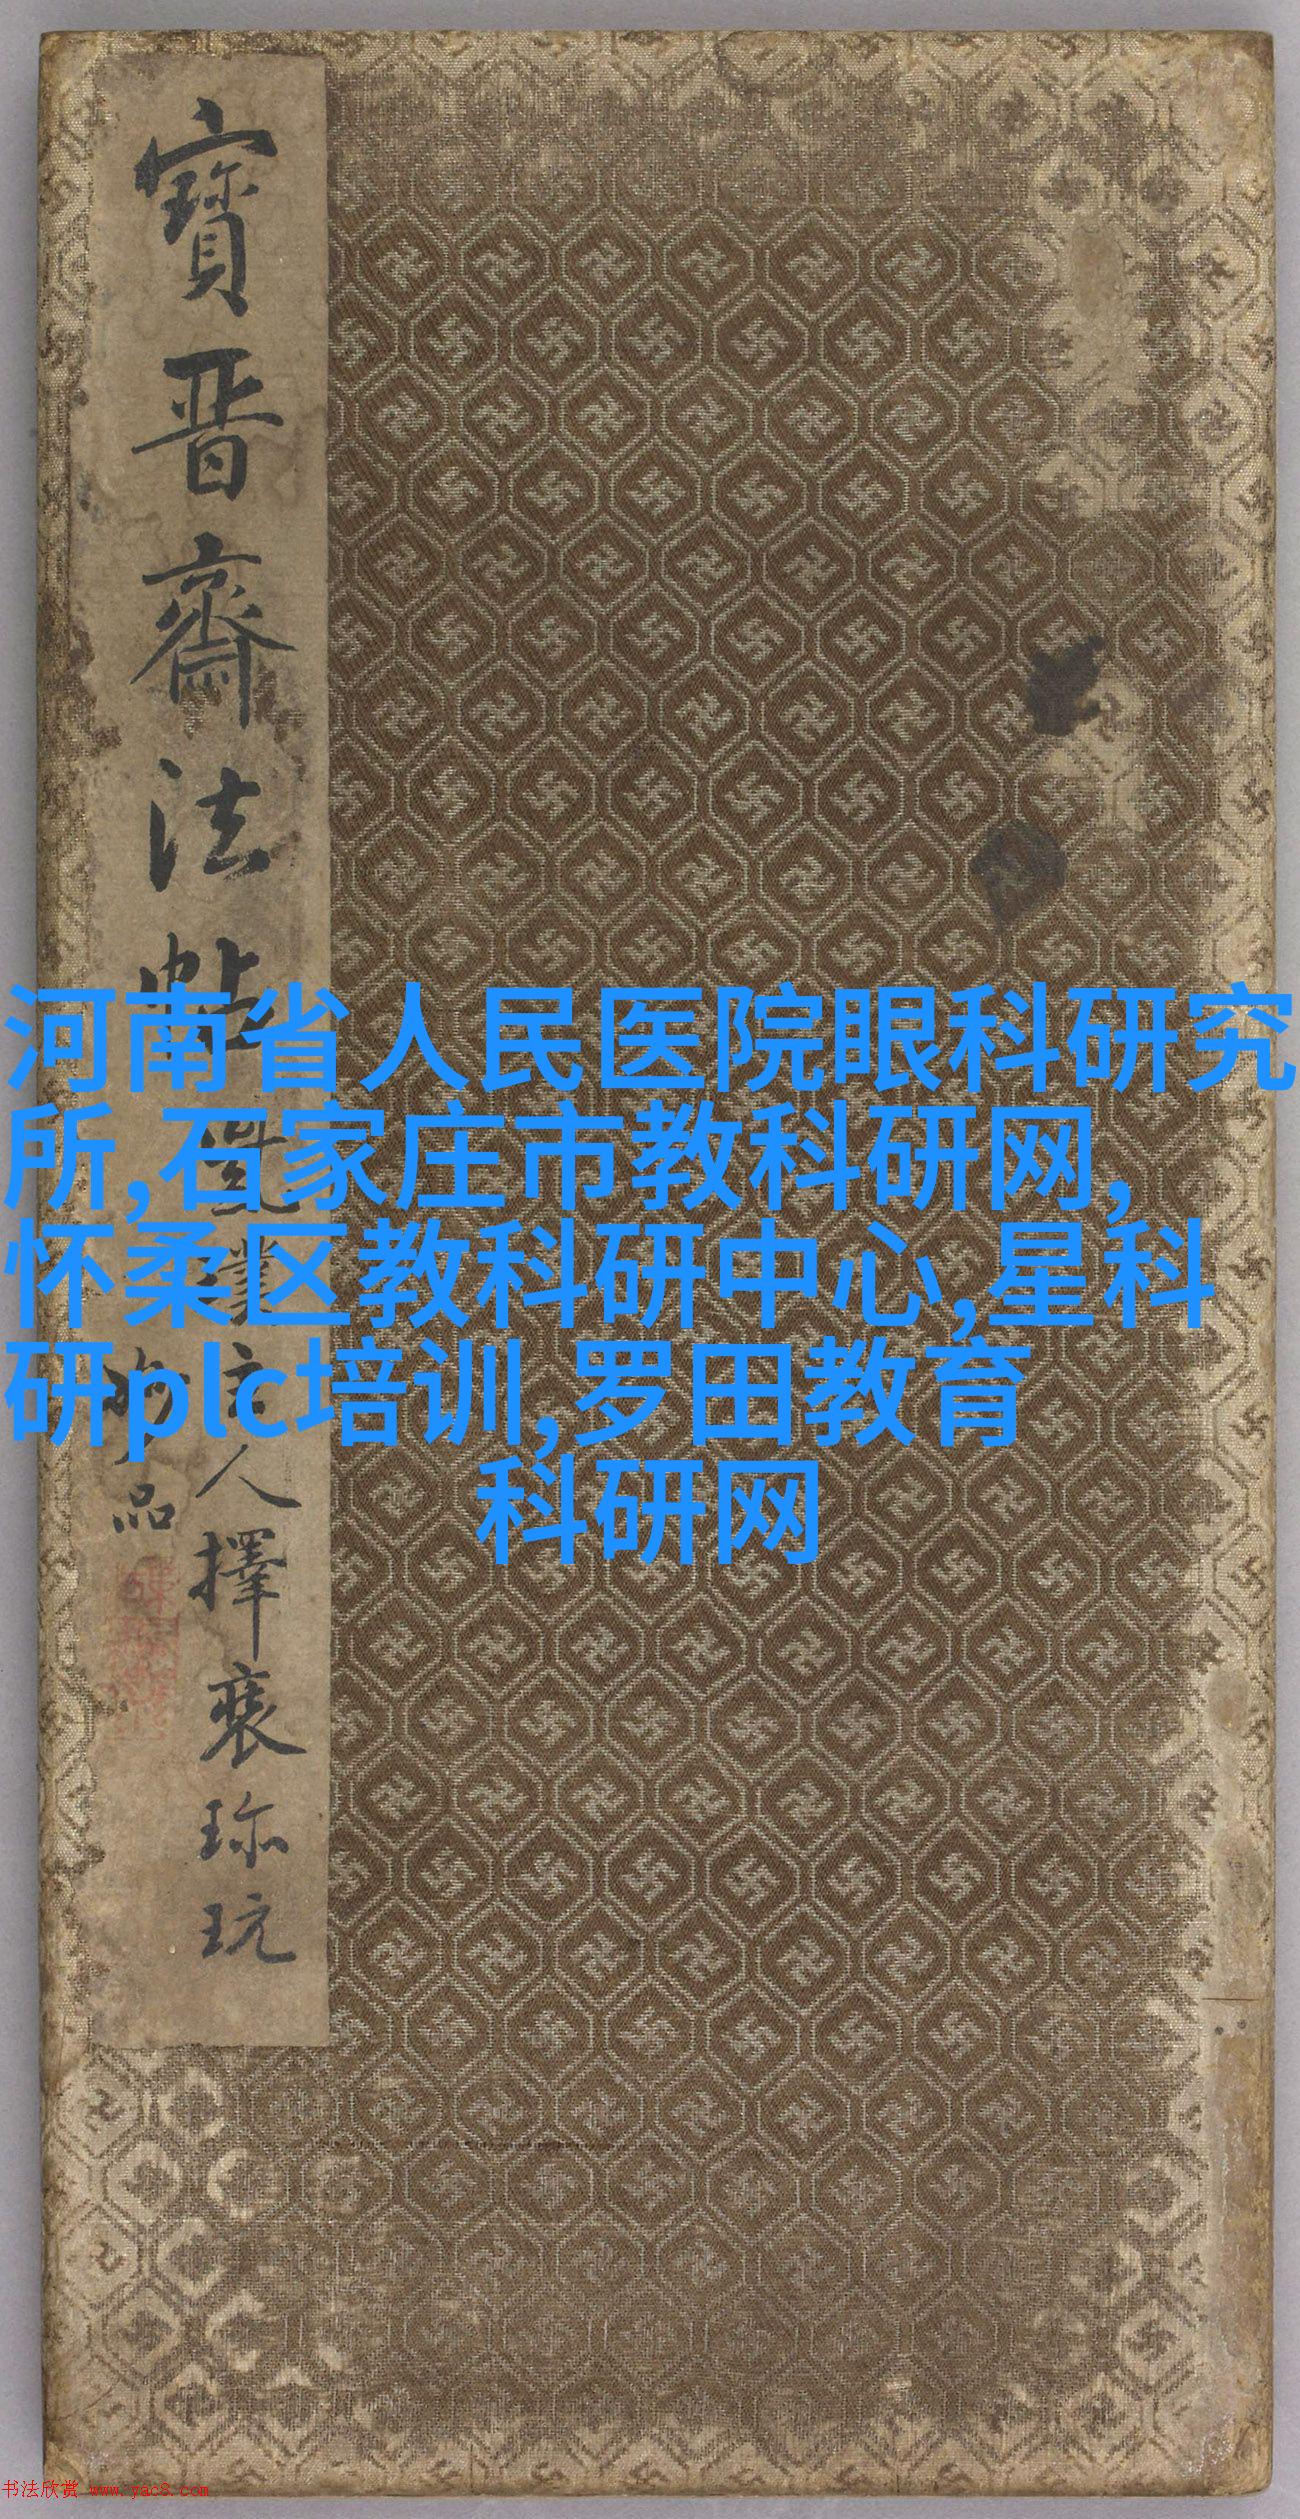 寶晉齋法帖
人擇裴珎玩
品
河南省人民医院眼科研究
所,石家庄市教科研网,
怀柔区教科研中心,星科
研plc培训,罗田教育
科研网
书法欣赏 www.yac8.com